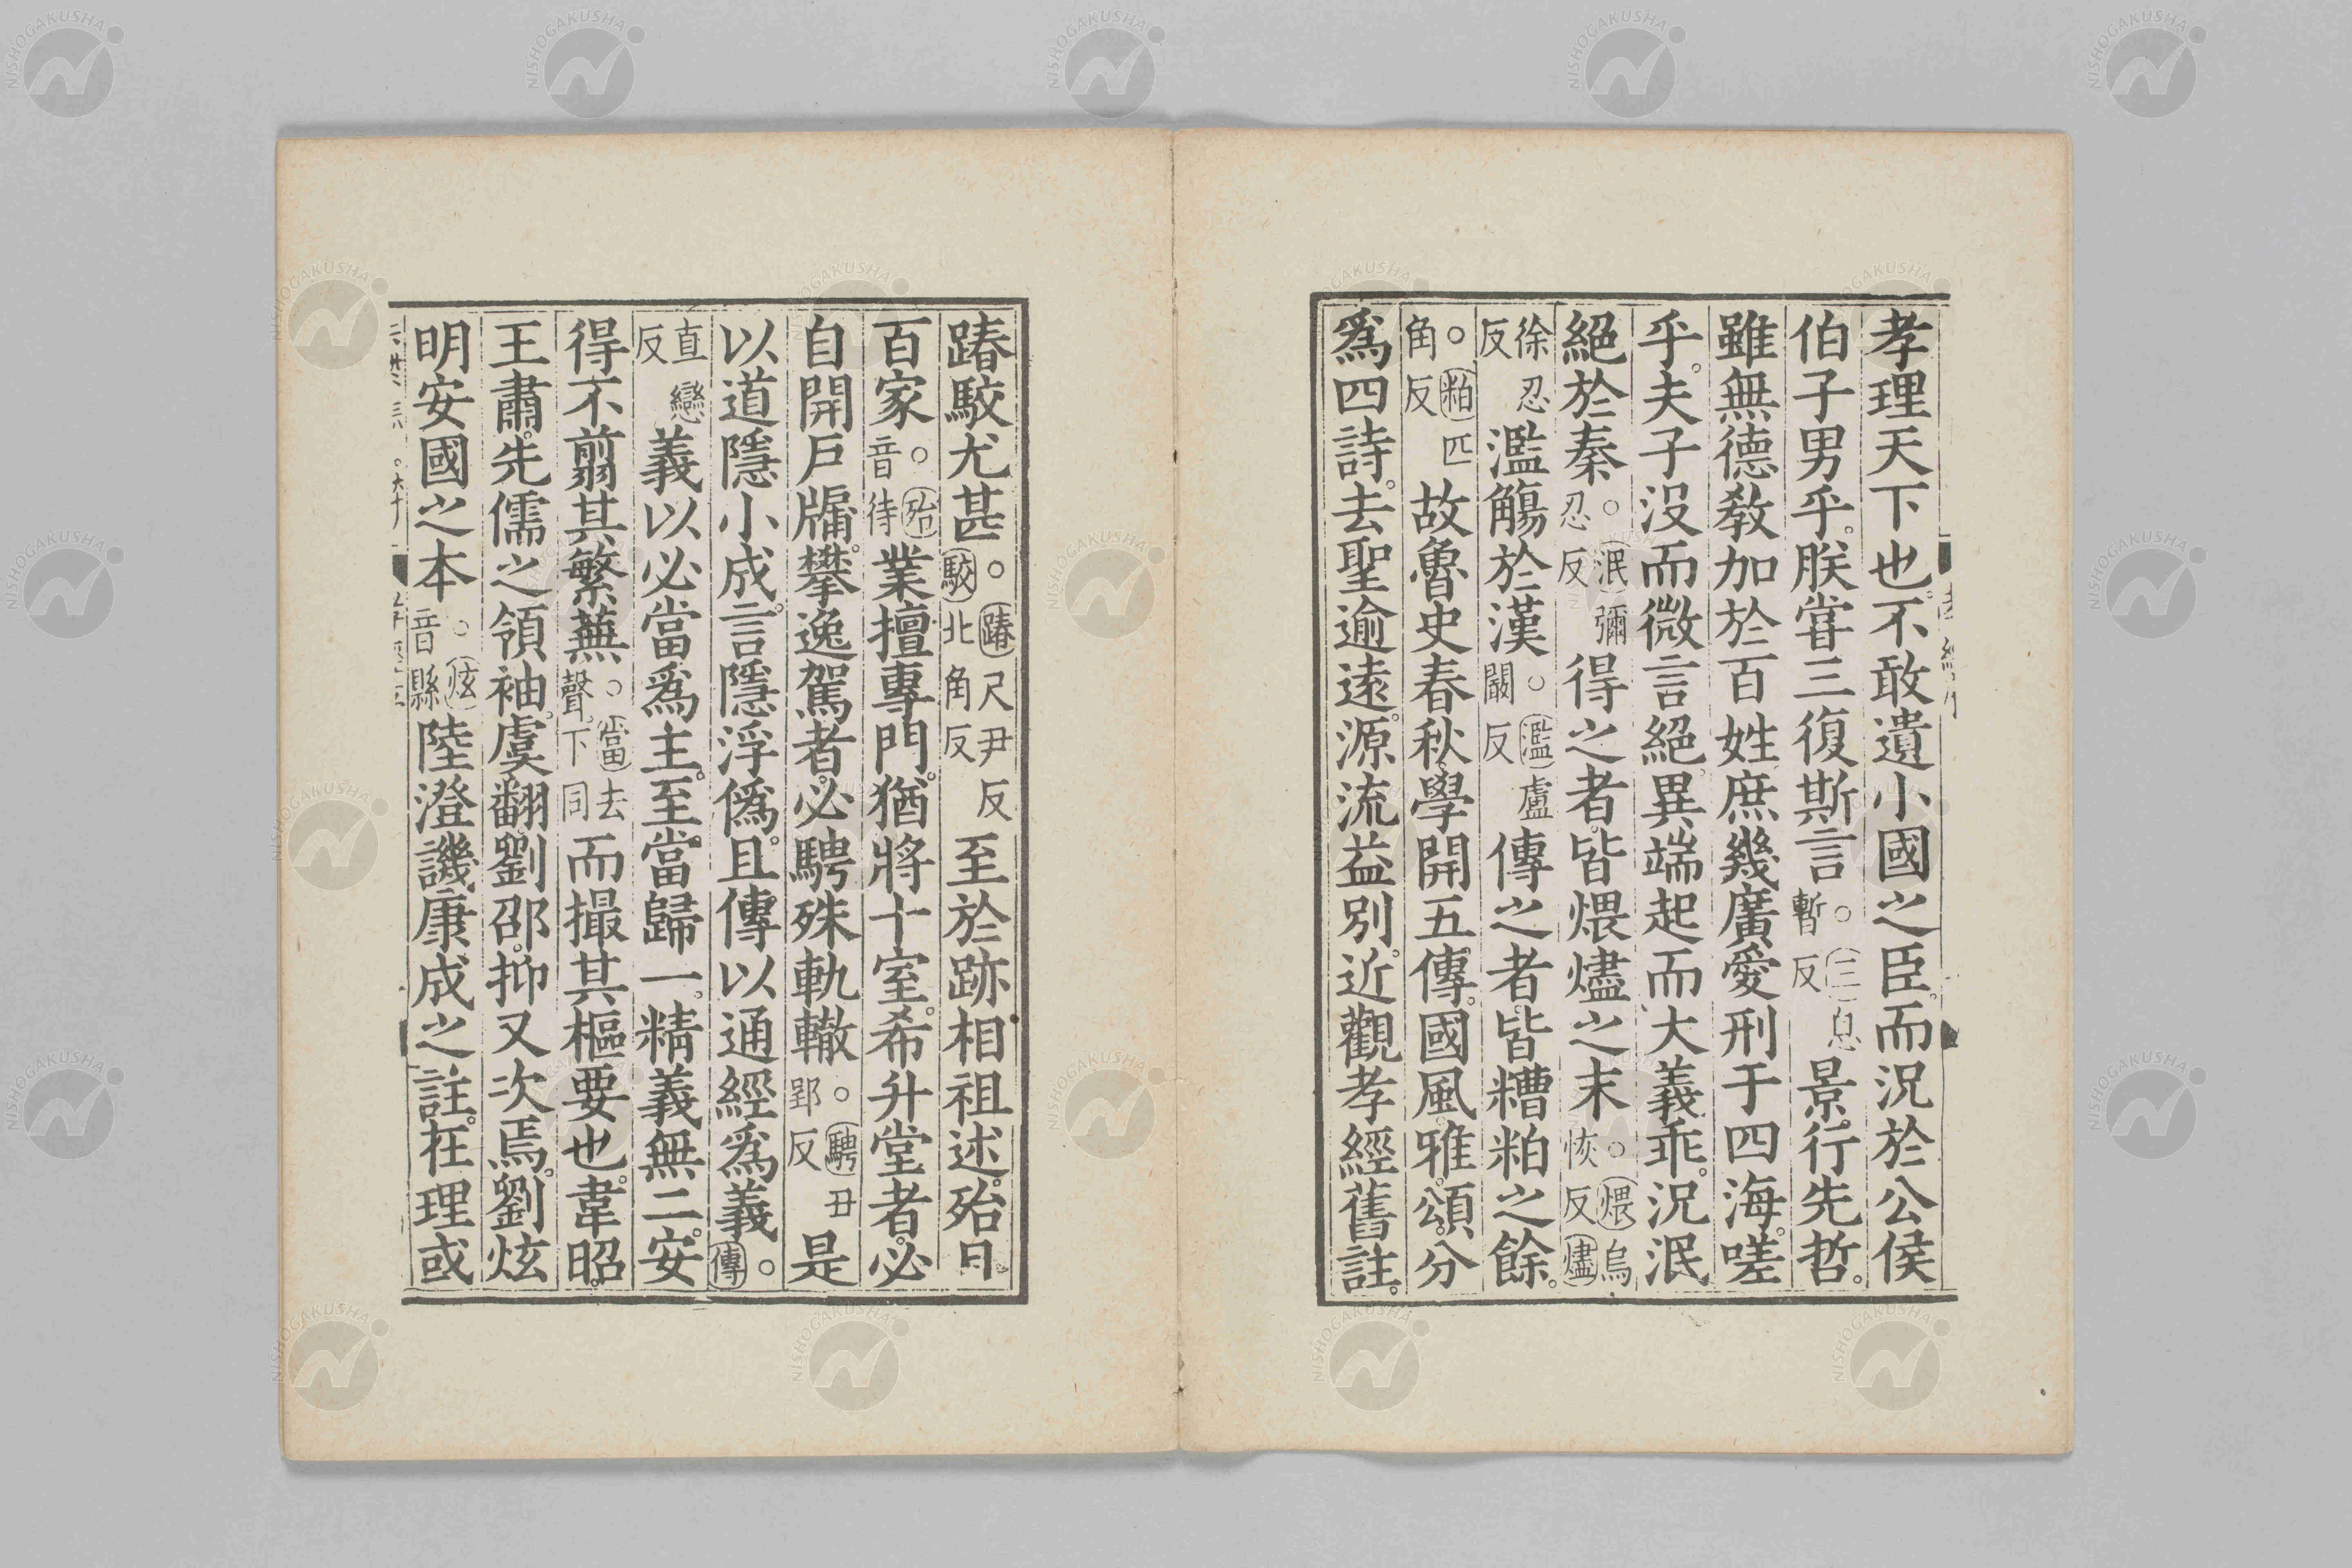 孝理天下也。不敢遺小國之臣。而況於公侯
伯子男乎。朕甞三復斯言○三息暫反景行先哲。
雖無德教加於百姓庶幾廣愛刑于四海。嗟
乎。夫子沒而微言絕異端起而大義乖。況泯
絕於秦○泯彌忍反得之者。皆煨燼之末○煨烏恢反燼
徐忍反濫觴於漢○濫盧闞反傳之者。皆糟粕之餘。
○粕匹角反故魯史春秋。學開五傳。國風。雅。頌。分
爲四詩。去聖逾遠。源流益別。近觀孝經舊註。
踳駮尤甚○踳尺尹反駮北角反至於跡相祖述。殆且
百家○殆音待業擅專門。猶將十室。希升堂者。必
自開戶牖。攀逸駕者。必騁殊軌轍○騁丑郢反是
以道隱小成。言隱浮僞。且傳以通經爲義○傳
直戀反義以必當爲主。至當歸一。精義無二。安
得不翦其繁蕪○當去聲。下同而撮其樞要也。韋昭。
王肅。先儒之領袖。虞翻劉邵。抑又次焉。劉炫
明安國之本○炫音縣陸澄譏康成之註。在理或